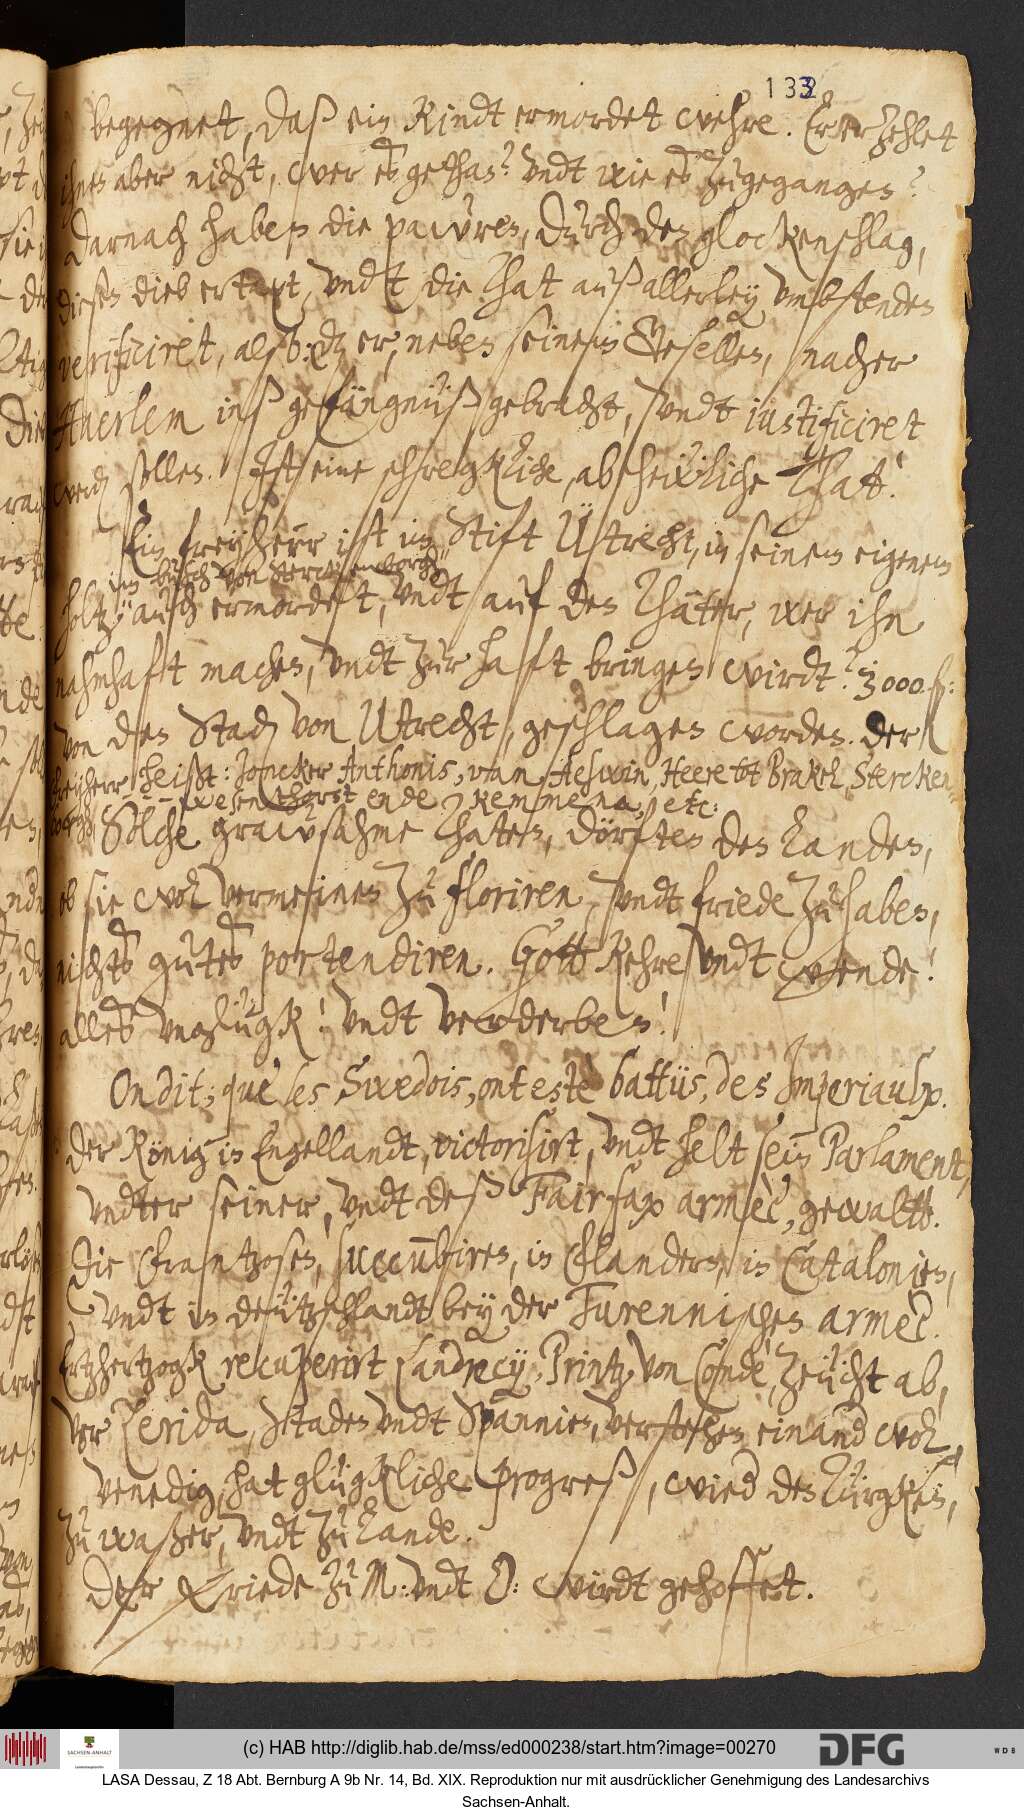 133
begegnet, daß ein Kindt ermordet wehre. Er erzehlet
ihnen aber nicht, wer es gethan? undt wie es zugegangen?
Darnach haben die pauvren, durch den glockenschlag,
diesen dieb ertapt, undt die That auß allerley umbstenden
verificiret, also: daß er, neben seinem Gesellen, nacher
Haerlem inß gefängnüß gebracht, undt iustificiret
werden sollen. Ist eine schregkliche, abscheuliche That!
Ein freyherr ist im Stift Uttrecht, in seinem eigenem
im busch von Sterckenborgh
holtz auch ermordet, undt auf den Thäter, wer ihn
nahmhaft machen, undt zur haft bringen wirdt? 3000 fl:
von den Staden von Uttrecht, geschlagen worden. der
freyherr heißt: Joncker Anthonis, van Aeswin, Heere tot Brakel, Stercken-
borgh, wesenthorst ende kemmena, etc:
Solche grausahme Thaten, dörften den Landen,
ob sie wol vermeinen zu floriren, undt friede zu haben,
nichts gutes portendiren. Gott kehre undt wende!
alles unglügk! undt verderben!
On dit; que les Swedois, ont estè battüs, des Imperiaulx.
Der König in Engellandt, victorisirt, undt helt sein Parlament,
undter seiner, undt deß Fairfax armèè, gewaltt.
Die Frantzosen, succubiren, in Flandern, in Catalonien,
undt in deützschlandt bey der Turennischen armèè.
Ertzhertzogk recuperirt Landrecy, Printz von Condè, zeücht ab,
vor Lerida, Staden undt Spannien, verstehen einander wol,
Venedig, hat glügkliche progreß, wieder den Türgken,
zu waßer, undt zu Lande.
Der Friede zu M: undt O: wirdt gehoffet.
(c) HAB http://diglib.hab.de/mss/ed000238/start.htm?image=00270
SACHSEN-ANHALT
DFG
WDB
LASA Dessau, Z 18 Abt. Bernburg A 9b Nr. 14, Bd. XIX. Reproduktion nur mit ausdrücklicher Genehmigung des Landesarchivs
Sachsen-Anhalt.